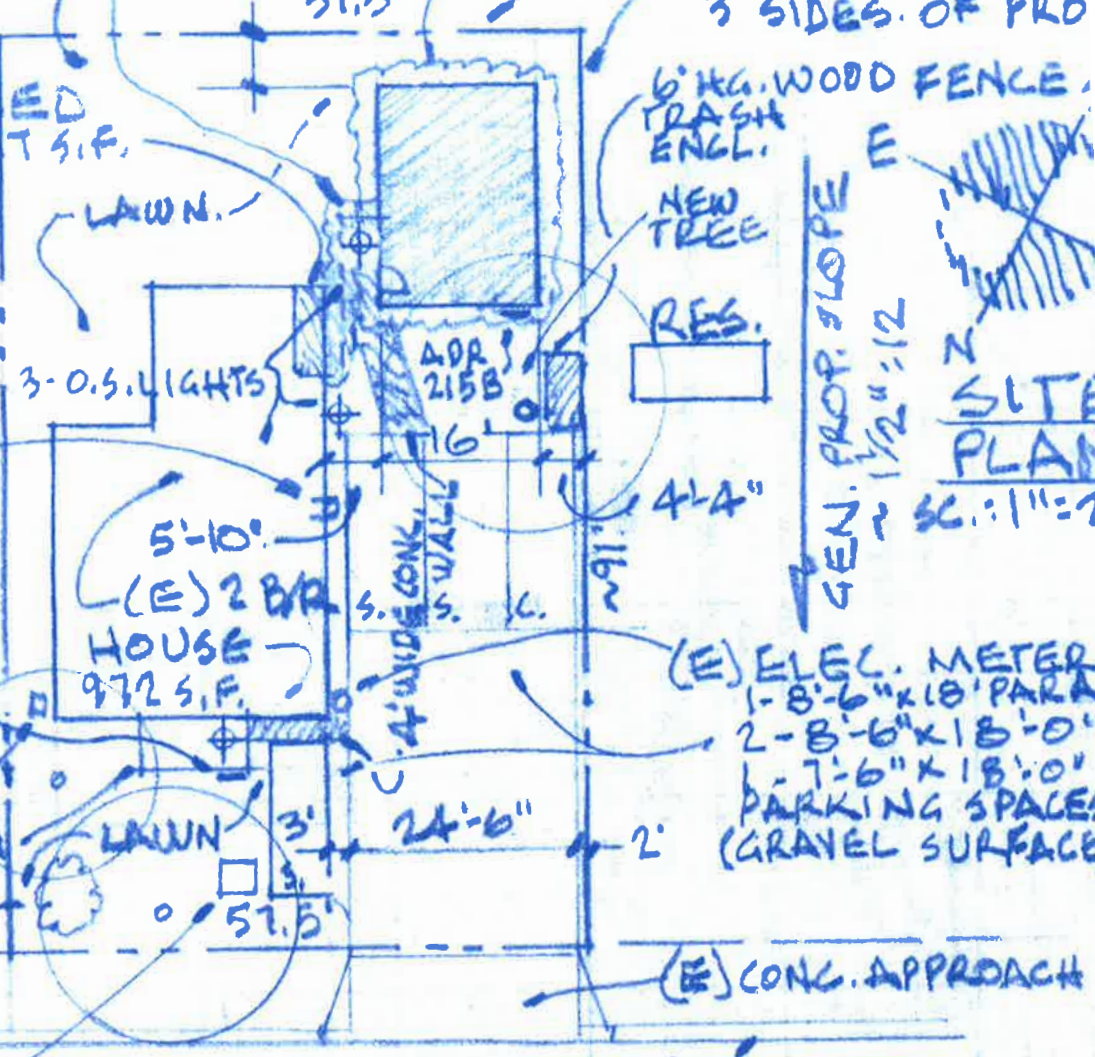 3 SIDES. OF PRO
6' HG. WOOD FENCE.
TRASH
ENCL.
ED
T S.F.
LAWN.
NEW
TREE
E
N
GEN. PROP. SLOPE
~ 1 1/2":12
RES.
SITE
PLAN
SC.: 1"=2
3-O.S. LIGHTS
ADR
215B
16'
4'-4"
5'-10"
(E) 2 B/R
HOUSE
972 S.F.
4' WIDE CONC.
WALL
S. S. C.
~91'
(E) ELEC. METER
1-8'-6"x18' PARA
2-8'-6"x18'-0"
1-7'-6"x18'-0"
PARKING SPACES
(GRAVEL SURFACE
LAWN
3'
24'-6"
2'
S.
57.5'
(E) CONC. APPROACH